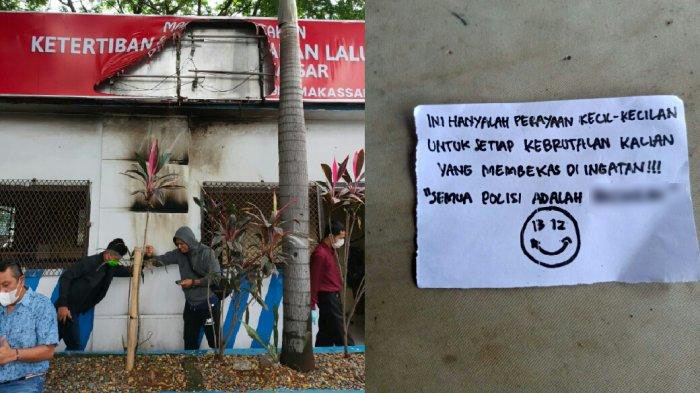 KETERTIBAN
AN LALU
SAR
MAKASSAR
INI HANYALAH PERAYAAN KECIL-KECILAN
UNTUK SETIAP KEBRUTALAN KALIAN
YANG MEMBEKAS DI INGATAN!!!
"SEMUA POLISI ADALAH
13 12